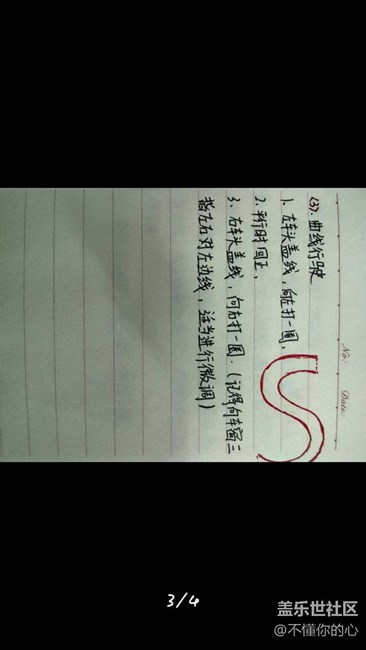 No:
Date:
(3). 曲线行驶
1. 左车头盖线，向左打一圈，
2. 平行时回正，
3. 右车头盖线，向右打一圈．（记得向车窗二
指左右对左边线，适当进行微调）
3/4
盖乐世社区
@不懂你的心